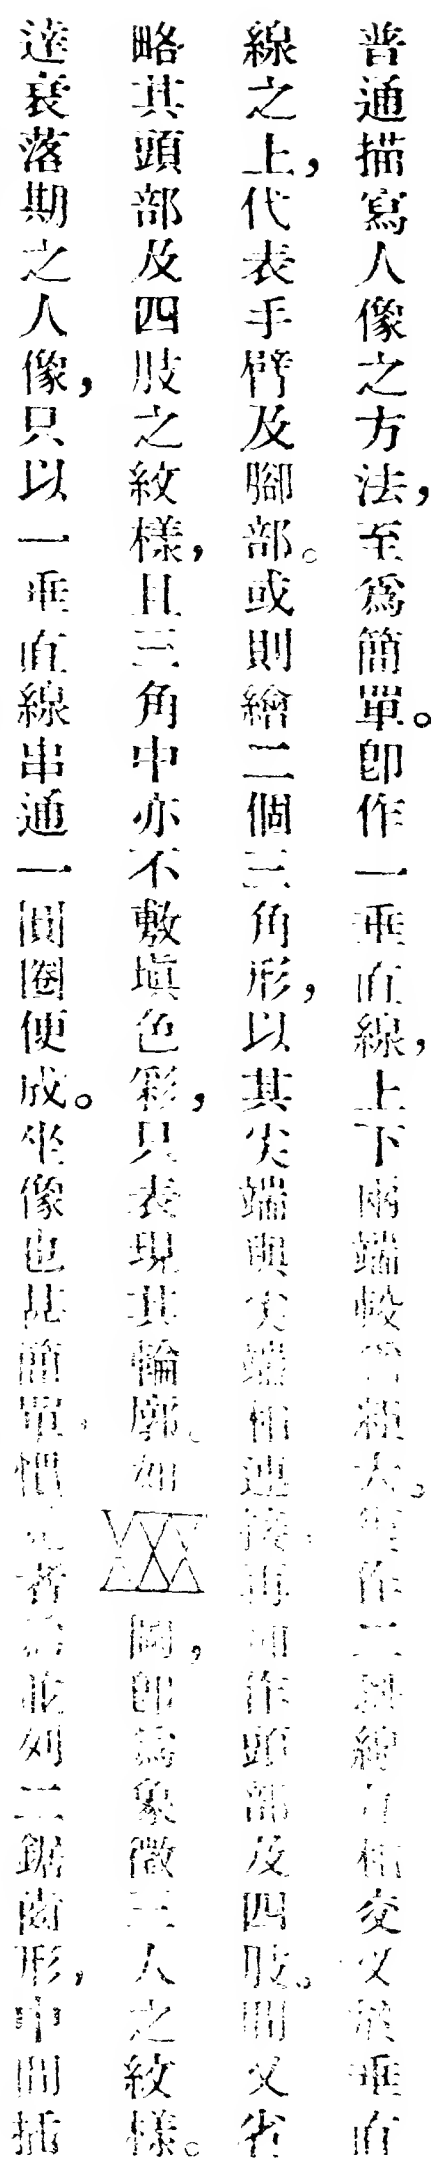 普通描寫人像之方法，至爲簡單。卽作一垂直線，上下兩端較爲粗大。更作二斜線互相交叉於垂直
線之上，代表手臂及腳部。或則繪二個三角形，以其尖端與尖端相連接，再加作頭部及四肢。間又省
略其頭部及四肢之紋樣，且三角中亦不敷填色彩，只表現其輪廓。如圖，卽爲象徵三人之紋樣。
達衰落期之人像，只以一垂直線串通一圓圈便成。坐像也甚簡單，慣見者爲並列二鋸齒形，中間插